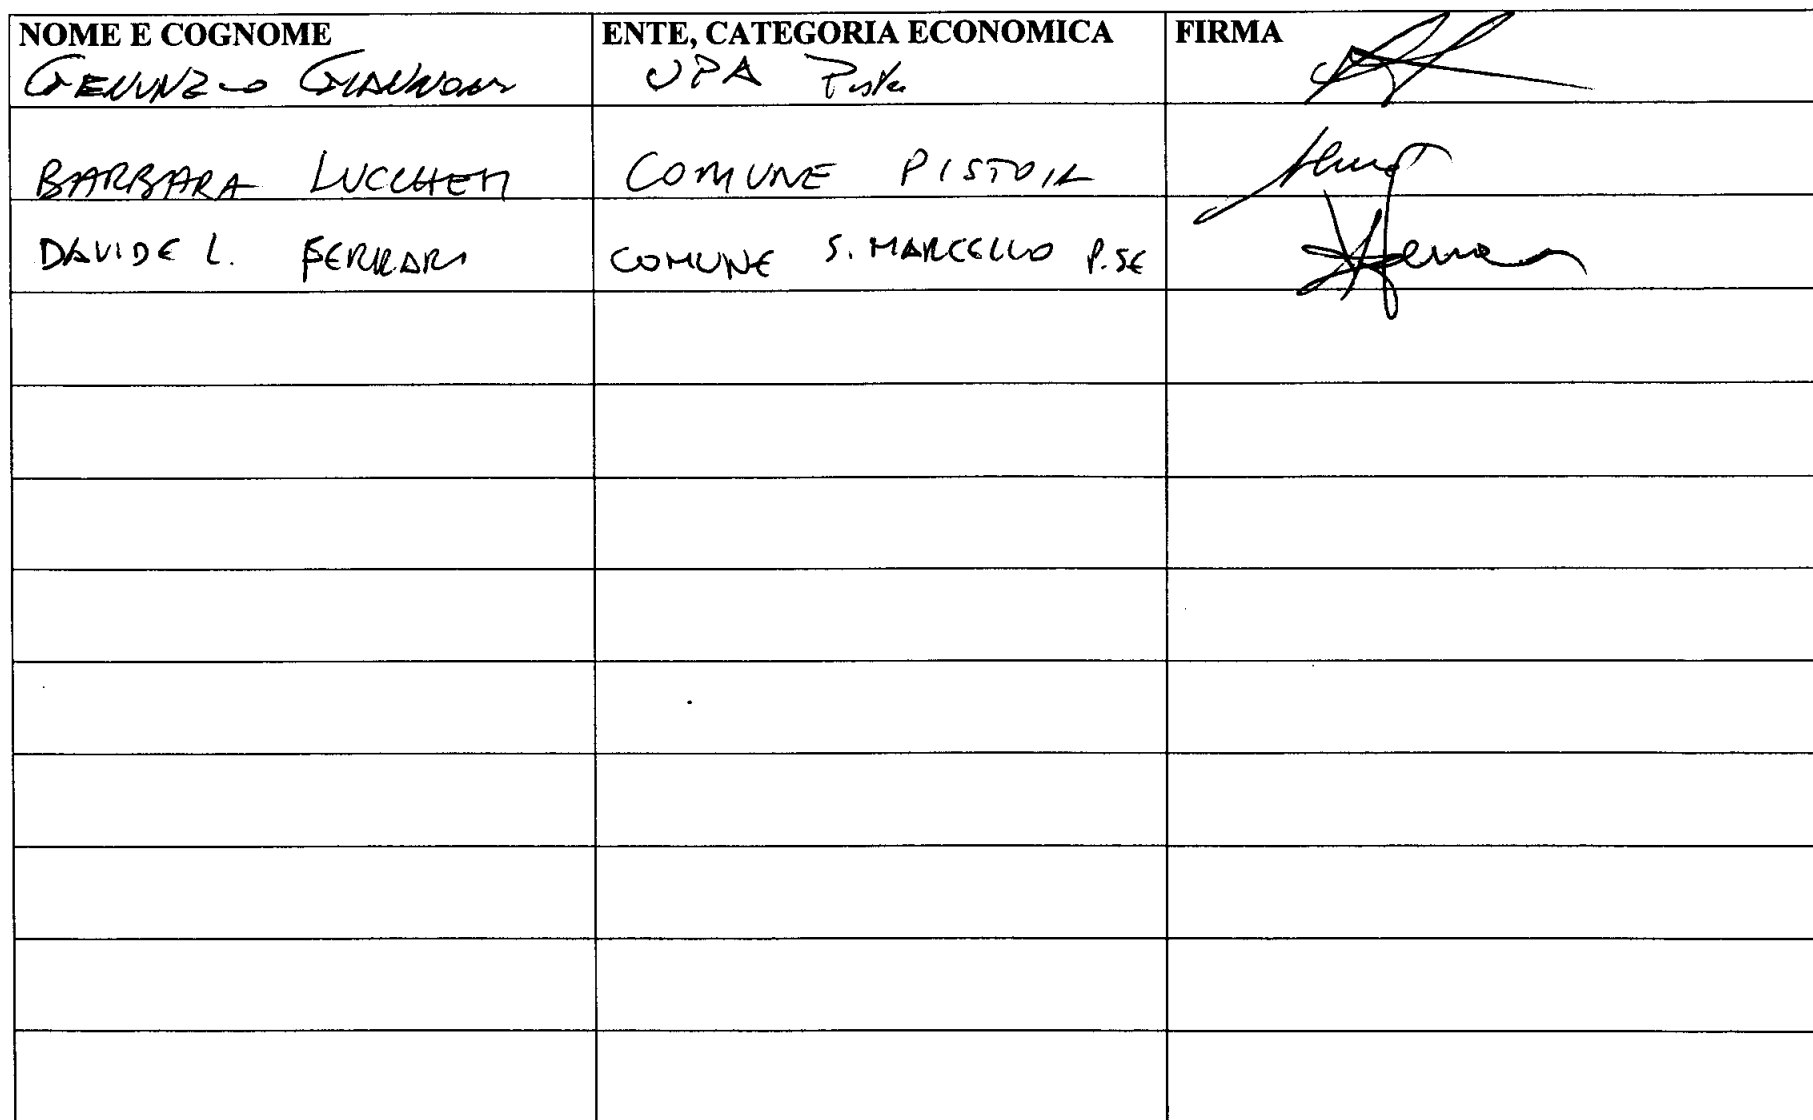 NOME E COGNOME ENTE, CATEGORIA ECONOMICA FIRMA
UPA
BARBARA LUCCHETTI COMUNE PISTOIA
DAVIDE L. FERRARI COMUNE S. MARCELLO P.SE